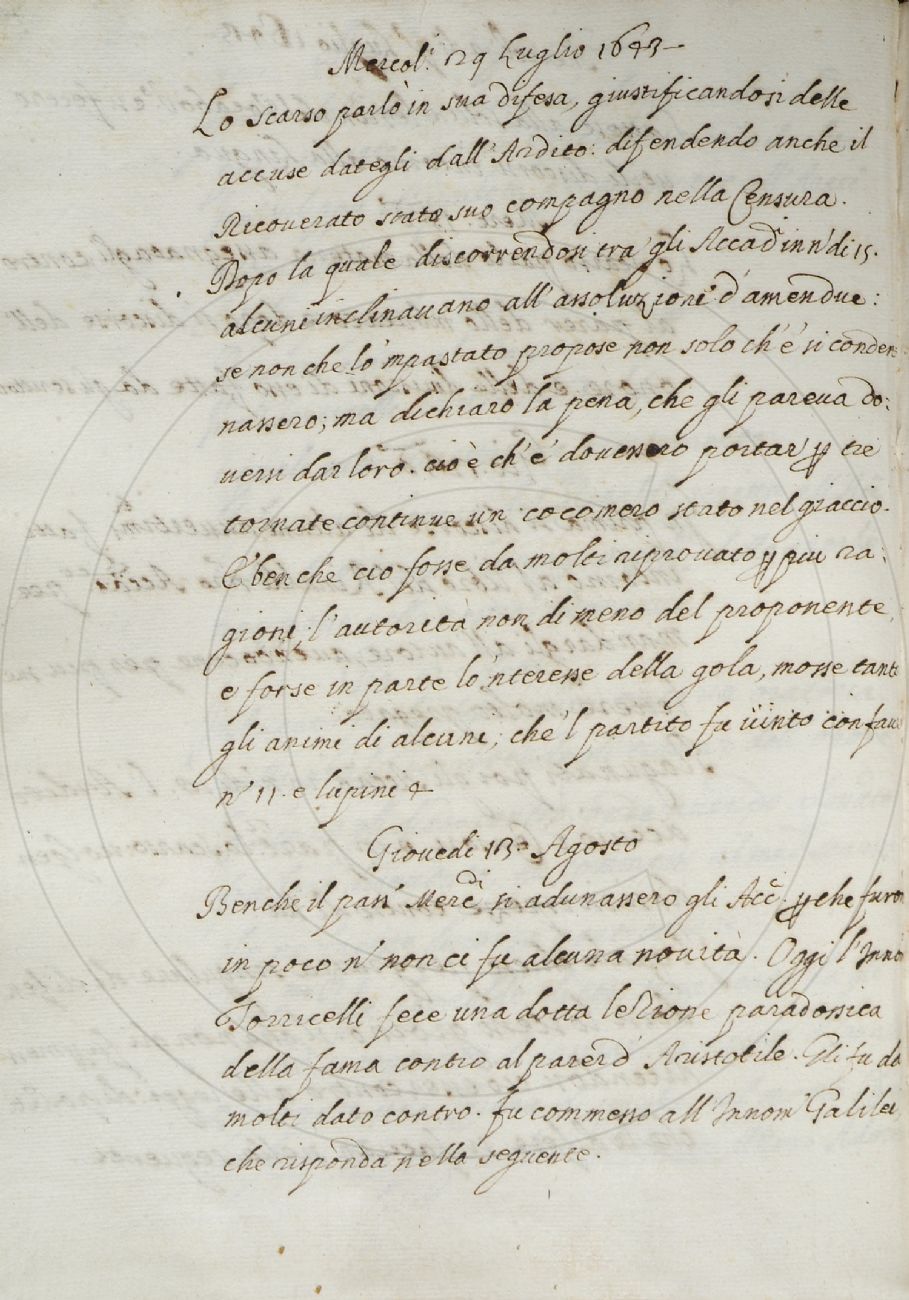 Mercol. 29 Luglio 1643
Lo Scarso parlò in sua difesa, giustificandosi delle
accuse dategli dall'Ardito: difendendo anche il
Ricoverato stato suo compagno nella Censura.
Dopo la quale discorrendosi tra gli Accad in n' di 15.
alcuni inclinavano all'assoluzione d'amendue:
se non che lo 'mpastato propose non solo ch'e' si conden
nassero; ma dichiarò la pena, che gli pareva do:
versi dar loro. ciò è ch'e' dovessero portar p tre
tornate continue un' cocomero stato nel giaccio.
E benche ciò fosse da molti riprovato p piu ra:
gioni, l'autorità non di meno del proponente,
e forse in parte lo 'nteresse della gola, mosse tanto
gli animi di alcuni, che 'l partito fu vinto con fave
n' 11. e lupini 4
Giovedi 13 Agosto
Benche il pass' Mercdi si adunassero gli Acc. p che furon
in poco n' non ci fu alcuna novità. Oggi l'Inno
Torricelli fece una dotta lezione paradossica
della fama contro al parer d'Aristotile. Gli fu da
molti dato contro. fu commesso all'Innom' Galilei
che risponda nella seguente.